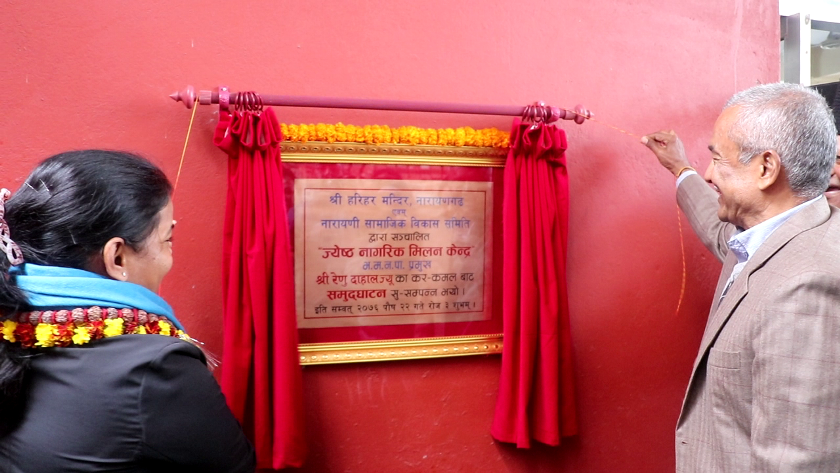 श्री हरिहर मन्दिर, नारायणगढ
एवम्
नारायणी सामाजिक बिकास समिति
द्वारा सञ्चालित
"ज्येष्ठ नागरिक मिलन केन्द्र"
भ.म.न.पा. प्रमुख
श्री रेणु दाहालज्यू का कर-कमल बाट
समुद्घाटन सु-सम्पन्न भयो ।
इति सम्वत् २०७६ पौष २२ गते रोज ३ शुभम् ।